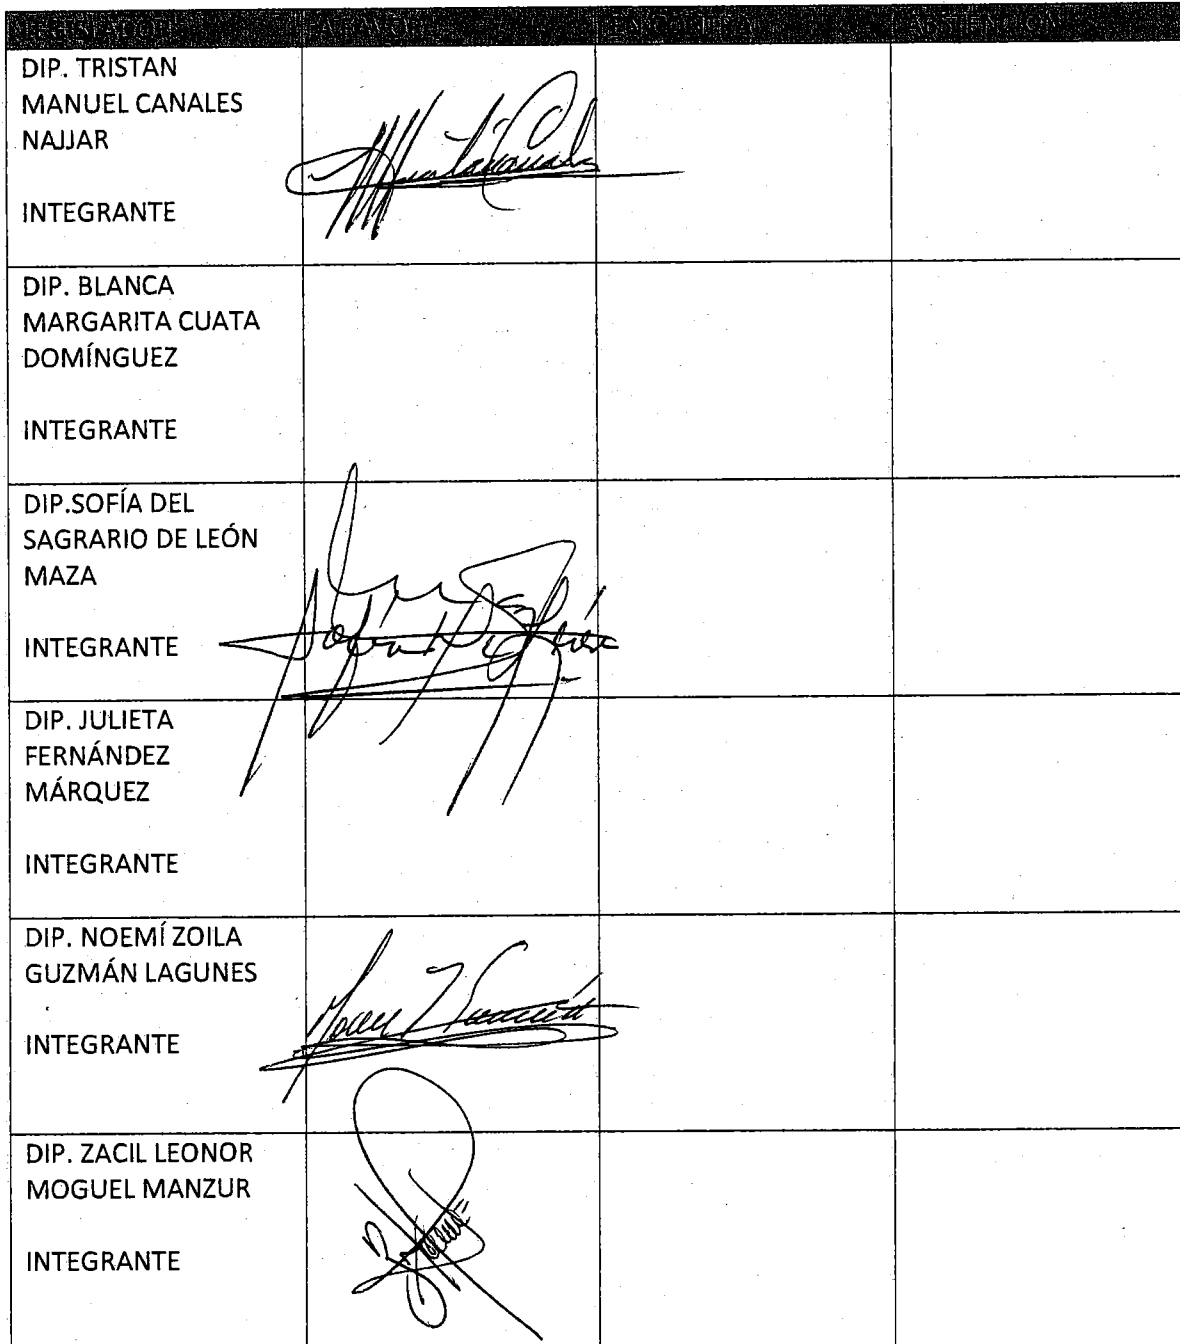 LEGISLADOR A FAVOR EN CONTRA ABSTENCIÓN
DIP. TRISTAN
MANUEL CANALES
NAJJAR
INTEGRANTE
DIP. BLANCA
MARGARITA CUATA
DOMÍNGUEZ
INTEGRANTE
DIP.SOFÍA DEL
SAGRARIO DE LEÓN
MAZA
INTEGRANTE
DIP. JULIETA
FERNÁNDEZ
MÁRQUEZ
INTEGRANTE
DIP. NOEMÍ ZOILA
GUZMÁN LAGUNES
INTEGRANTE
DIP. ZACIL LEONOR
MOGUEL MANZUR
INTEGRANTE